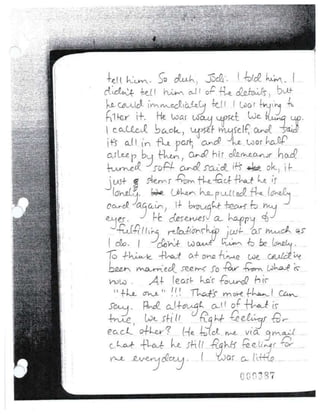 tell him. So duh, Jodi. I told him. I
didn't tell him all of the details, but
he could immediately tell I was trying to
filter it. He was way upset. We hung up.
I called back, upset myself, and said
it's all in the past, and he was half
asleep by then, and his demeanor had
turned soft and said its ok, it
just stems from the fact that he is
lonely. When he pulled the lonely
card again, it brought tears to my
eyes. He deserves a happy &
fulfilling relationship just as much as
I do. I don't want him to be lonely.
To think that at one time we could've
been married seems so far from what is
now. At least he's found his
"the one"!!! That's more than I can
say. And although all of that is
true, we still fight feelings for
each other? He told me via gmail
chat that he still fights feelings for
me everyday. I was a little
000387